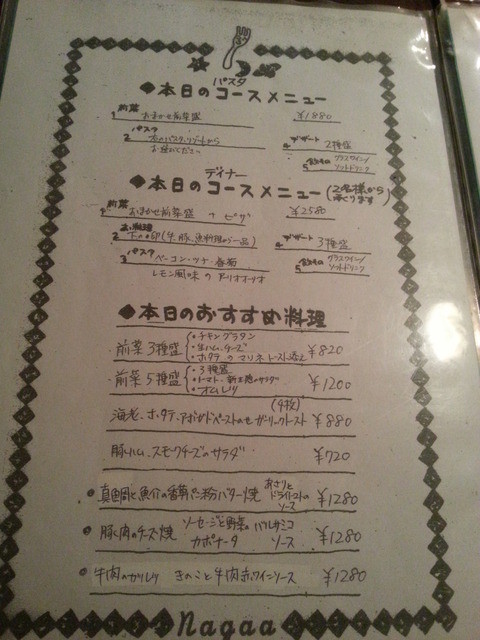 パスタ
◆本日のコースメニュー
前菜
1 おまかせ前菜盛 ¥1880
パスタ デザート
2 本のパスタ、リゾットから 4 2種盛
お選びください
5 飲みもの グラスワイン/ソフトドリンク
ディナー
◆本日のコースメニュー(2名様から承ります)
前菜
1 おまかせ前菜盛 + ピザ ¥2580
お料理 デザート
2 (牛、豚、魚料理から一品) 4 3種盛
パスタ
3 ベーコン・ツナ・春菊 5 飲みもの グラスワイン/ソフトドリンク
レモン風味の
◆本日のおすすめ料理
前菜3種盛 ・チキングラタン
・生ハム、チーズ ¥820
・ホタテのマリネ トースト添え
前菜5種盛 ・3種盛
・トマト・新玉葱のサラダ ¥1200
・オムレツ
(4枚)
海老、ホタテ、アボカドペーストのせガーリックトースト ¥880
豚ハム、スモークチーズのサラダ ¥720
●真鯛と魚介の香草パン粉バター焼 あさりとドライトマトのソース ¥1280
●豚肉のチーズ焼 ソーセージと野菜のカポナータ バルサミコソース ¥1280
●牛肉のカツレツ きのこと牛肉赤ワインソース ¥1280
Nagaa